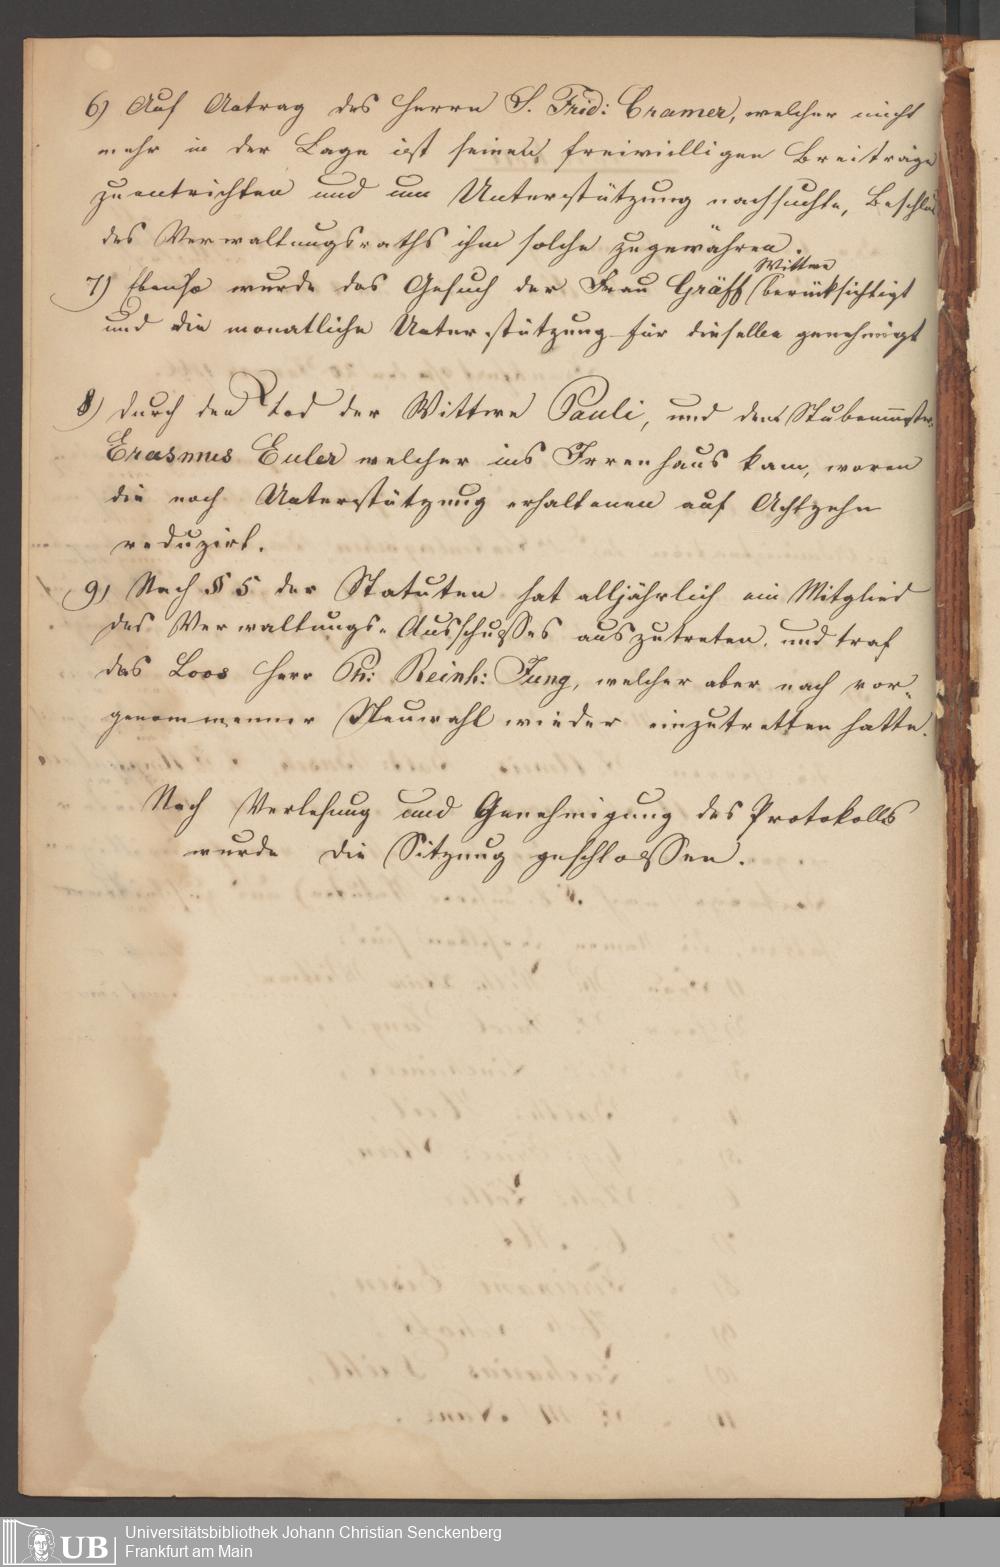 6) Auf Antrag des Herrn S. Frid: Cramer, welcher nicht
mehr in der Lage ist seinen freiwilligen Breiträge
zuentrichten und um Unterstützung nachsuchte, Beschluß
des Verwaltungsraths ihm solche zugewähren.
7) Ebenso wurde das Gesuch der Frau Gräff Wittwe berücksichtigt
und die monatliche Unterstützung für dieselbe genehmigt
8) durch den Tod der Wittwe Pauli, und dem Stubenmaster
Erasmus Euler welcher ins Irrenhaus kam, waren
die noch Unterstützung erhaltenen auf Achtzehn
reduzirt.
9) Nach § 5 der Statuten hat alljährlich ein Mitglied
des Verwaltungs-Ausschußes auszutreten, und traf
das Loos Herr Ph: Reinh: Jung, welcher aber nach vor-
genommenner Neuwahl wieder einzutretten hatte.
Nach Verlesung und Genehmigung des Protokolls
wurde die Sitzung geschlossen.
UB
Universitätsbibliothek Johann Christian Senckenberg
Frankfurt am Main